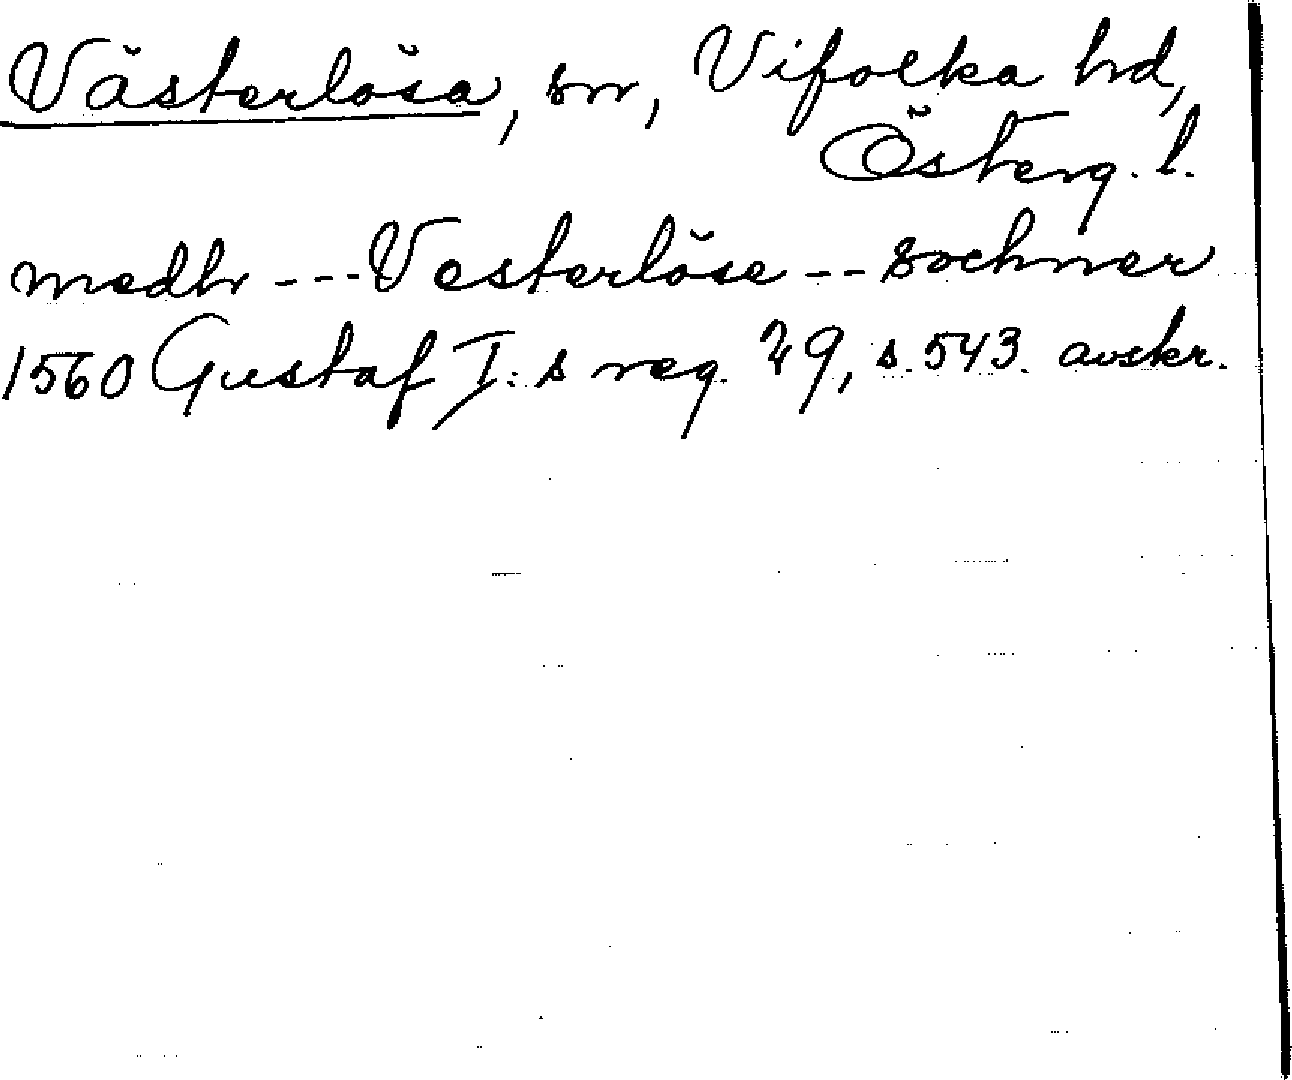 Västerlösa, sn, Vifolka hd,
Österg. l.
medh --- Vesterlöse -- sochner
1560 Gustaf I:s reg. 29, s. 543. avskr.